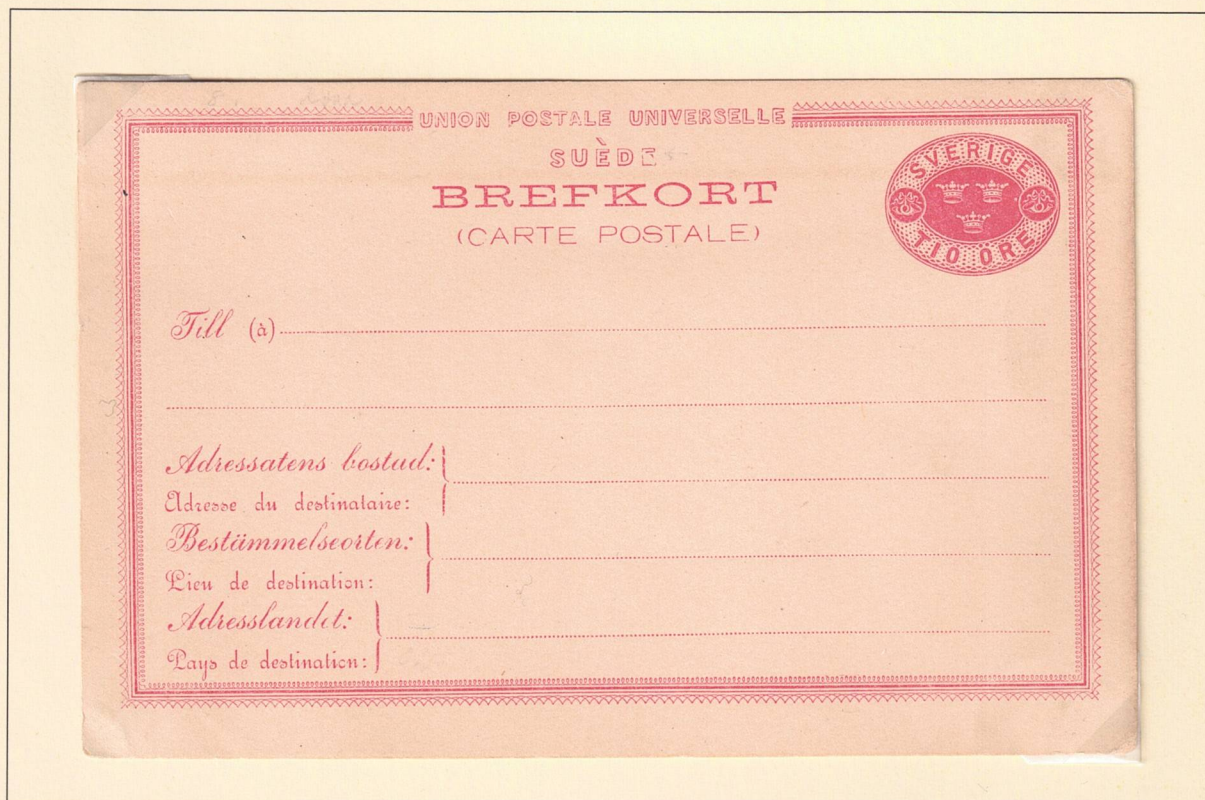 UNION POSTALE UNIVERSELLE
SUÈDE
BREFKORT
(CARTE POSTALE)
SVERIGE
TIO ÖRE
Till (à)
Adressatens bostad:
Adresse du destinataire:
Bestämmelseorten:
Lieu de destination:
Adresslandet:
Pays de destination: